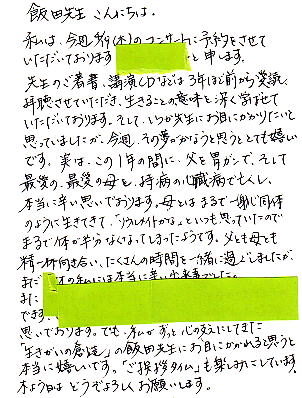 飯田先生 こんにちは。
私は、今週 9/9(木)のコンサートに予約をさせて
いただいております と申します。
先生のご著書、講演CDなどは3年ほど前から愛読、
拝聴させていただき、生きることの意味を深く学ばせて
いただいております。そして、いつか先生にお目にかかりたいと
思っていましたが、今週、その夢がかなうと思うととても嬉しい
です。実は、この1年の間に、父を胃がんで、そして
最後の、最後の母を、持病の心臓病で亡くし、
本当に辛い思いでおります。母とはまるで一卵性同体
のように生きてきて、「ソウルメイトかな」といつも思っていたので
まるで体が半分なくなってしまったようです。父とも母とも
精一杯向き合い、たくさんの時間を一緒に過ごしましたが、
まだ の私には本当に辛い出来事でした。
また
できず、
思いでおります。でも、私がずっと心の支えにしてきた
「生きがいの創造」の飯田先生にお目にかかれると思うと
本当に嬉しいです。「ご挨拶タイム」も楽しみにしています。
木よう日は どうぞよろしくお願いします。